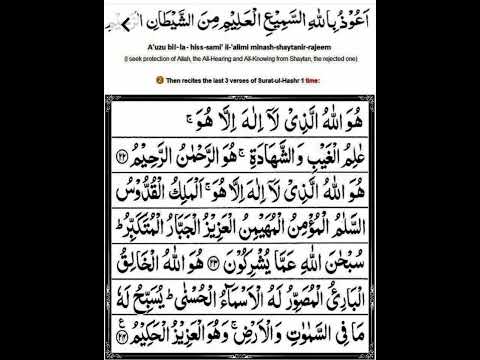 اَعُوْذُ بِاللّٰهِ السَّمِيْعِ الْعَلِيْمِ مِنَ الشَّيْطَانِ الرَّجِيْمِ
A'uzu bil-la- hiss-sami' il-'alimi minash-shaytanir-rajeem
(I seek protection of Allah, the All-Hearing and All-Knowing from Shaytan, the rejected one)
2 Then recites the last 3 verses of Surat-ul-Hashr 1 time:
هُوَ اللّٰهُ الَّذِیْ لَاۤ اِلٰهَ اِلَّا هُوَ ۚ
عٰلِمُ الْغَیْبِ وَالشَّهَادَةِ ۚ هُوَ الرَّحْمٰنُ الرَّحِیْمُ ﴿۲۲﴾
هُوَ اللّٰهُ الَّذِیْ لَاۤ اِلٰهَ اِلَّا هُوَ ۚ اَلْمَلِكُ الْقُدُّوْسُ
السَّلٰمُ الْمُؤْمِنُ الْمُهَیْمِنُ الْعَزِیْزُ الْجَبَّارُ الْمُتَكَبِّرُ ؕ
سُبْحٰنَ اللّٰهِ عَمَّا یُشْرِكُوْنَ ﴿۲۳﴾ هُوَ اللّٰهُ الْخَالِقُ
الْبَارِئُ الْمُصَوِّرُ لَهُ الْاَسْمَآءُ الْحُسْنٰی ؕ یُسَبِّحُ لَهٗ
مَا فِی السَّمٰوٰتِ وَالْاَرْضِ ۚ وَهُوَ الْعَزِیْزُ الْحَكِیْمُ ﴿۲۴﴾ ع